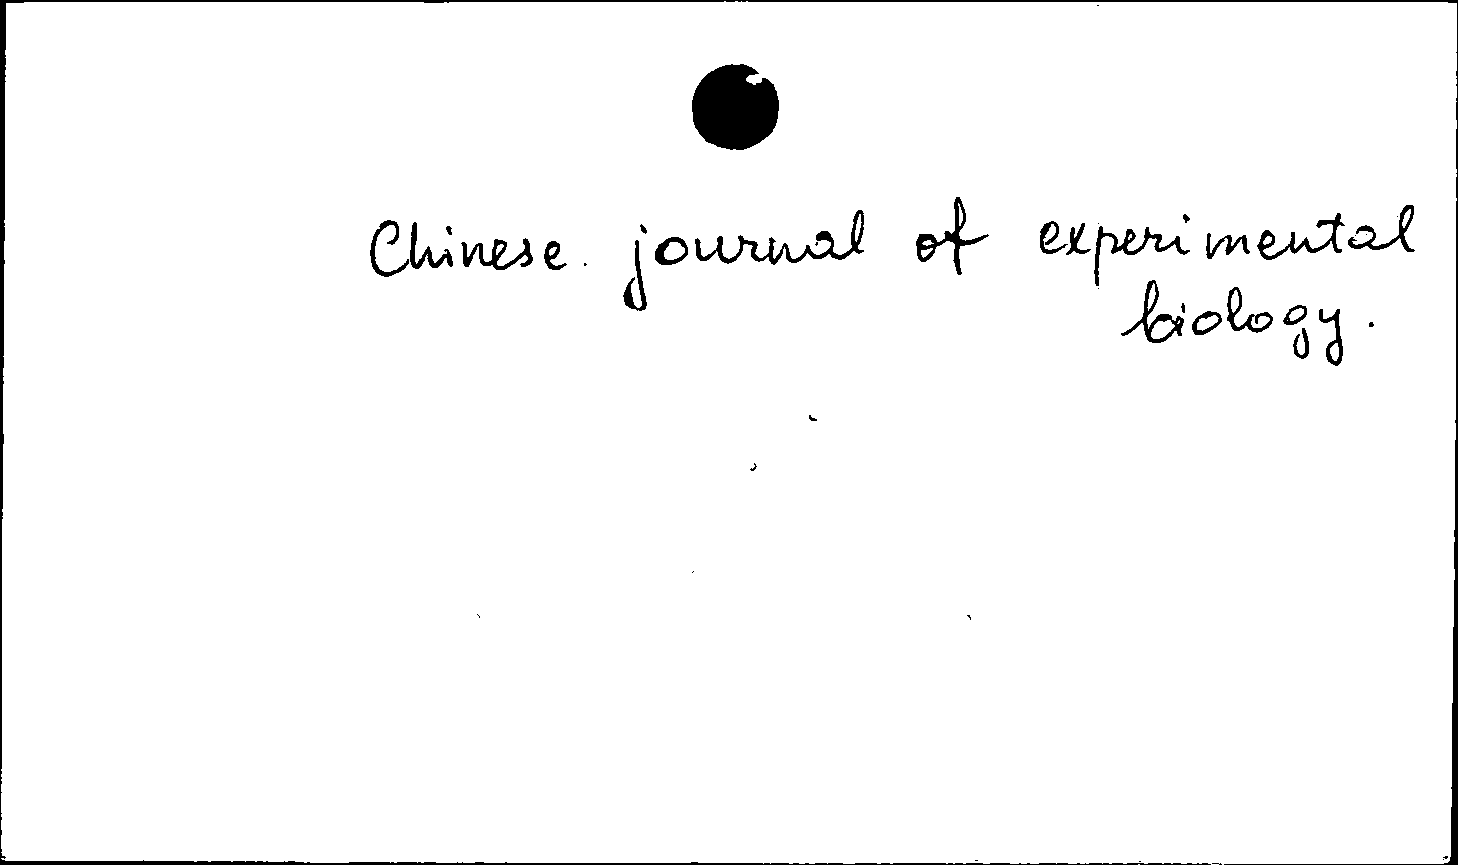 Chinese journal of experimental
biology.